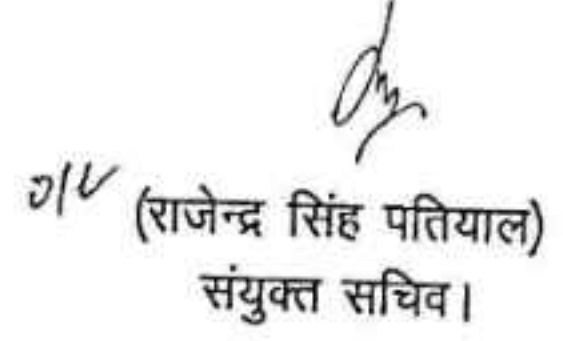 (राजेन्द्र सिंह पतियाल)
संयुक्त सचिव।